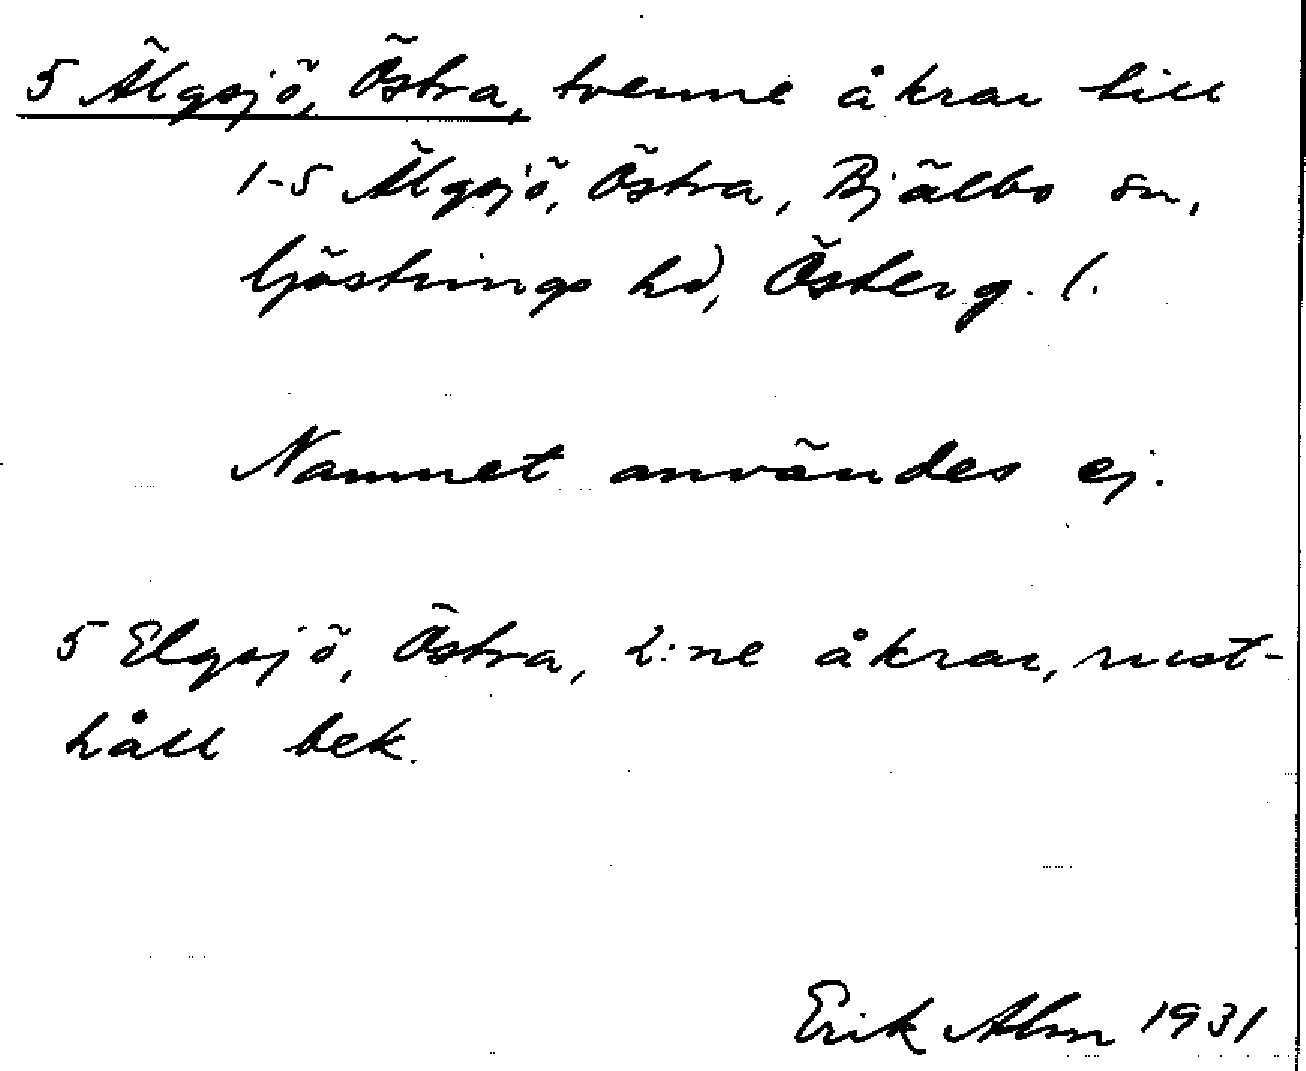 5 Älgsjö, Östra, tvenne åkrar till
1-5 Älgsjö, Östra, Bjälbo sn,
Göstrings hd, Österg. l.
Namnet användes ej.
5 Elgsjö, Östra, 2:ne åkrar, rust-
håll bek.
Erik Alm 1931